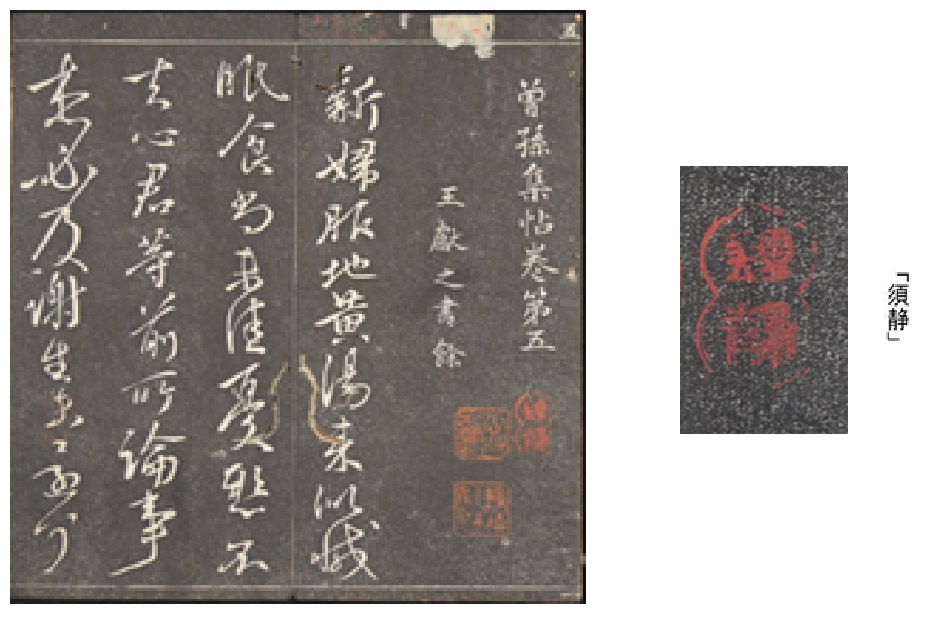 五
曾孫集帖卷第五
王獻之書餘
新婦服地黃湯來似減
眠食尚未佳憂懸不
去心君等前所論事
想必及謝生未還可尔
須静
「須静」